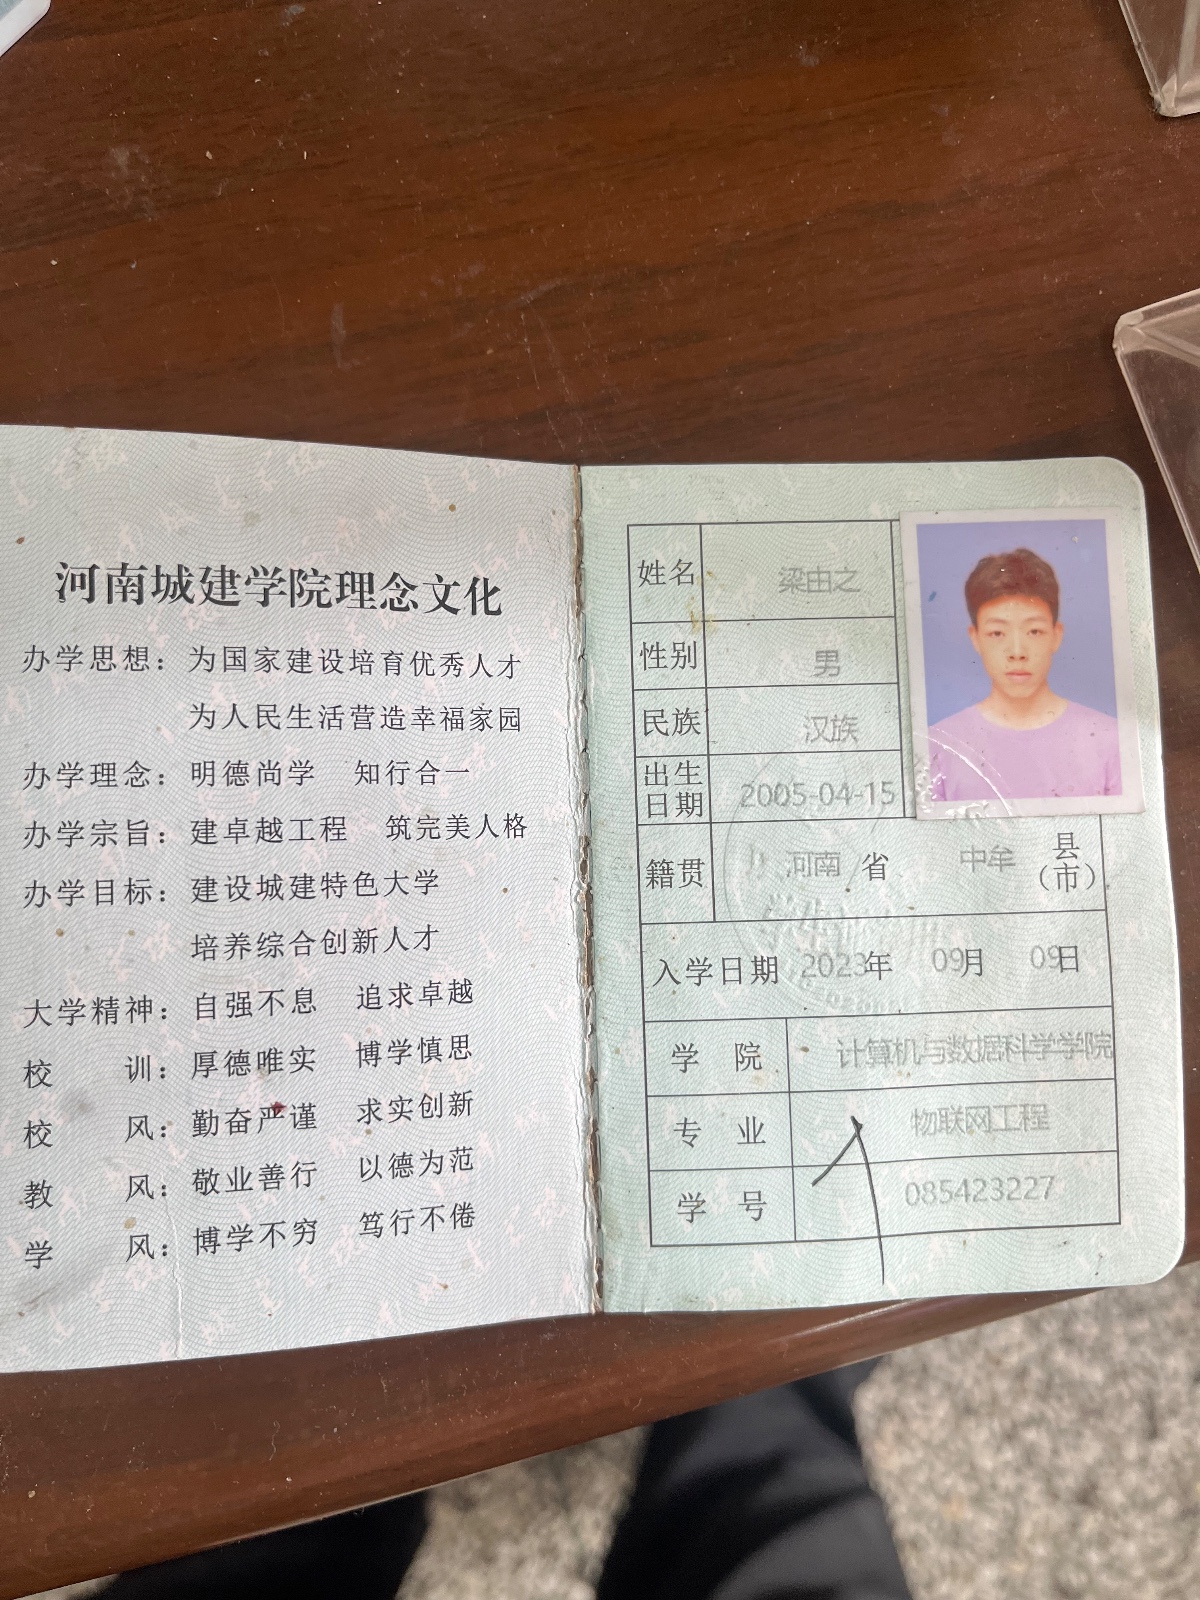 河南城建学院理念文化
办学思想：为国家建设培育优秀人才
为人民生活营造幸福家园
办学理念：明德尚学 知行合一
办学宗旨：建卓越工程 筑完美人格
办学目标：建设城建特色大学
培养综合创新人才
大学精神：自强不息 追求卓越
校 训：厚德唯实 博学慎思
校 风：勤奋严谨 求实创新
教 风：敬业善行 以德为范
学 风：博学不穷 笃行不倦
姓名 梁由之
性别 男
民族 汉族
出生日期 2005-04-15
籍贯 河南 省 中牟 县（市）
入学日期 2023年 09月 09日
学 院 计算机与数据科学学院
专 业 物联网工程
学 号 085423227